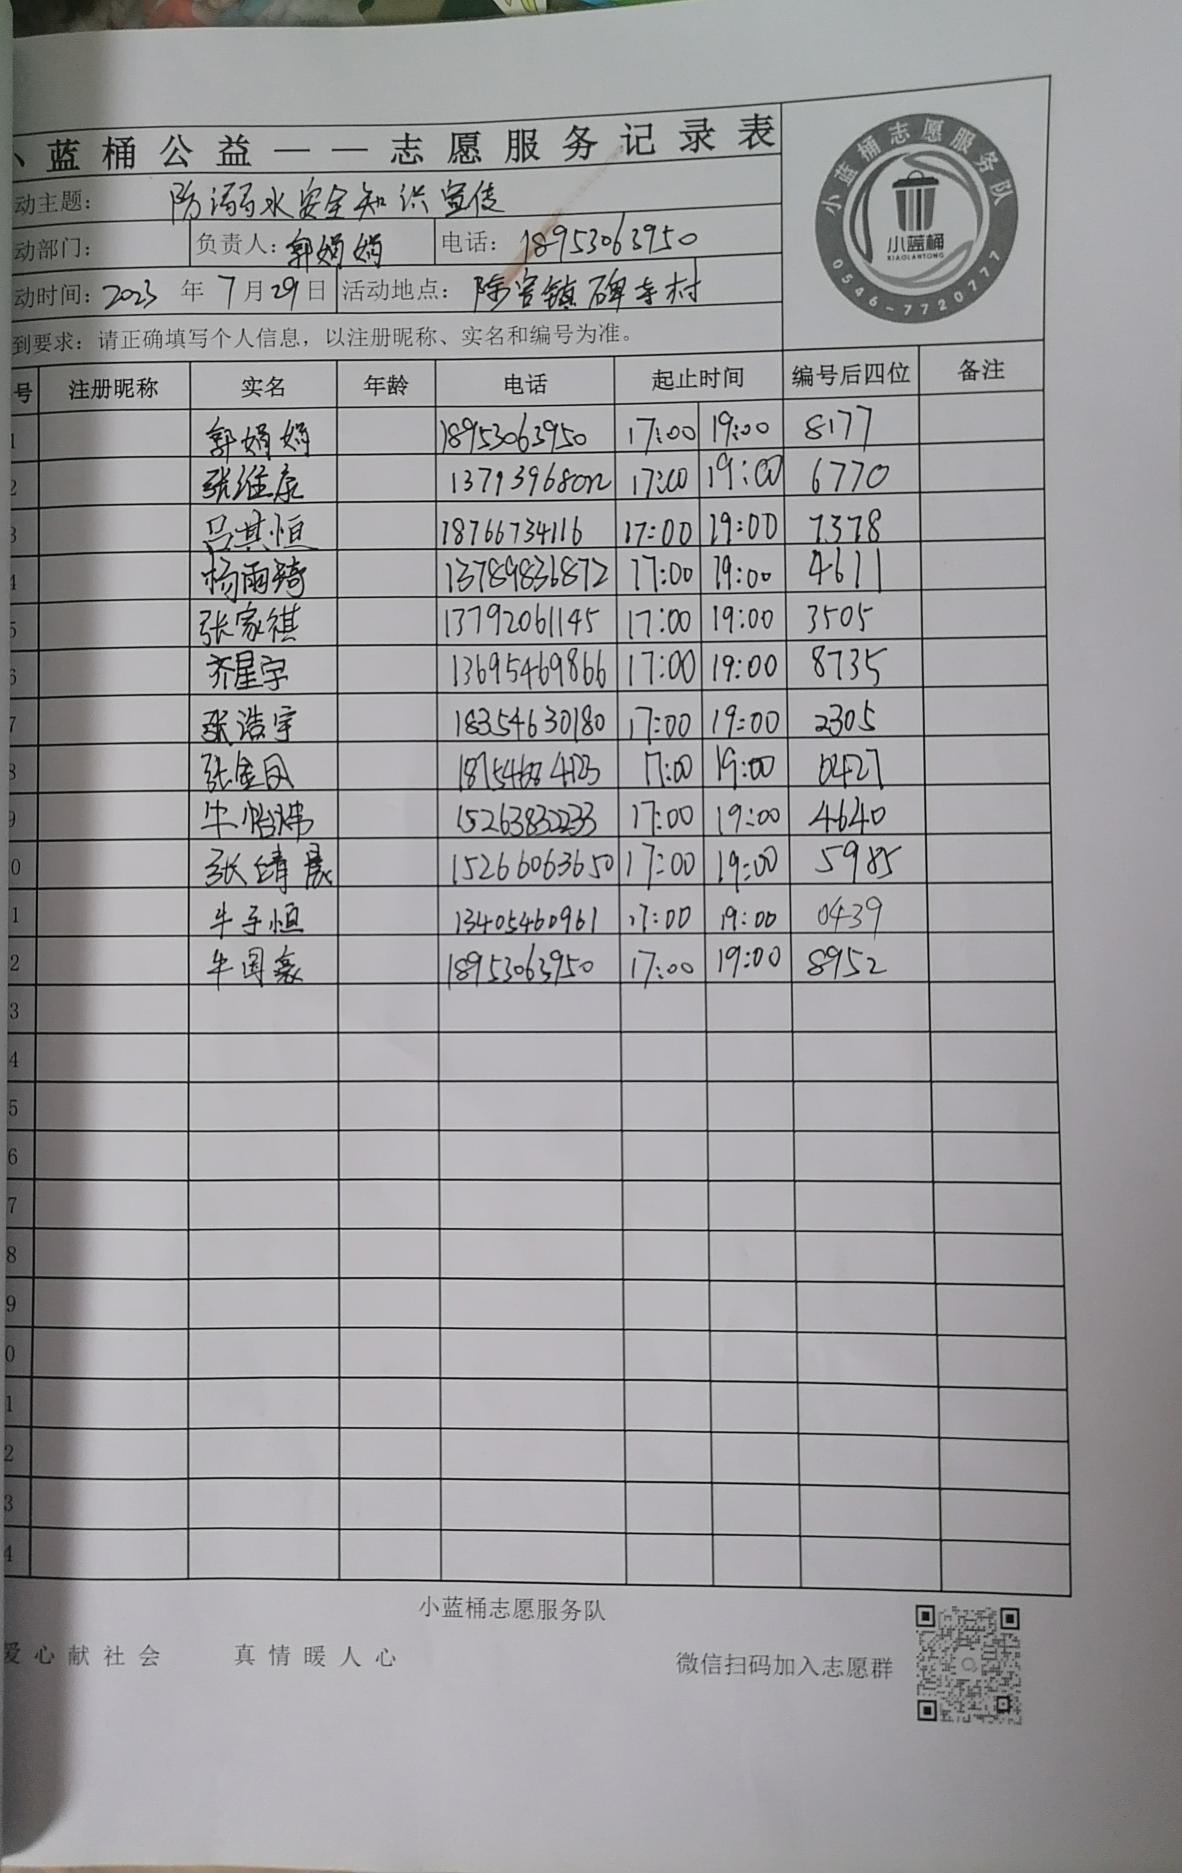 蓝桶公益——志愿服务记录表
小蓝桶志愿服务队
小蓝桶
XIAOLANTONG
0546-7720777
动主题: 防溺水安全知识宣传
动部门: 负责人: 郭娟娟 电话: 18953063950
动时间: 2023 年 7 月 29 日 活动地点: 陈官镇碑寺村
到要求: 请正确填写个人信息，以注册昵称、实名和编号为准。
号 注册昵称 实名 年龄 电话 起止时间 编号后四位 备注
1 郭娟娟 18953063950 17:00 19:00 8177
2 张维康 17:00 19:00 6770
3 吕淇恒 18766734116 17:00 19:00 7378
4 杨雨琦 13789836872 17:00 19:00 4611
5 张家祺 13792061145 17:00 19:00 3505
6 齐星宇 13695469866 17:00 19:00 8735
7 张浩宇 18354630180 17:00 19:00 2305
8 张金凤 17:00 19:00 0427
9 牛怡炜 15263832233 17:00 19:00 4640
0 张靖晟 15266063650 17:00 19:00 5985
1 牛子恒 13405460961 17:00 19:00 0439
2 牛国豪 18953063950 17:00 19:00 8952
3
4
5
6
7
8
9
0
1
2
3
4
小蓝桶志愿服务队
爱心献社会 真情暖人心 微信扫码加入志愿群